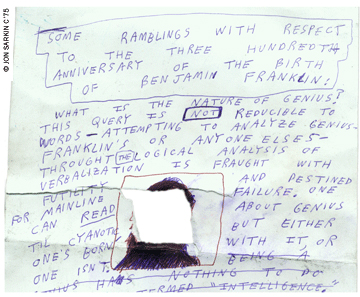 © JON SARKIN C'75
SOME RAMBLINGS WITH RESPECT
TO THE THREE HUNDREDTH
ANNIVERSARY OF THE BIRTH
OF BENJAMIN FRANKLIN:
WHAT IS THE NATURE OF GENIUS?
THIS QUERY IS NOT REDUCIBLE TO
WORDS—ATTEMPTING TO ANALYZE GENIUS—
FRANKLIN'S OR ANYONE ELSES—
THROUGH THE LOGICAL ANALYSIS OF
VERBALIZATION IS FRAUGHT WITH
FUTILITY AND DESTINED
FOR MAINLINE FAILURE. ONE
CAN READ ABOUT GENIUS
TIL CYANOTIC BUT EITHER
ONE'S BORN WITH IT, OR
ONE ISN'T. BEING A
GENIUS HAS NOTHING TO DO
TERMED "INTELLIGENCE."